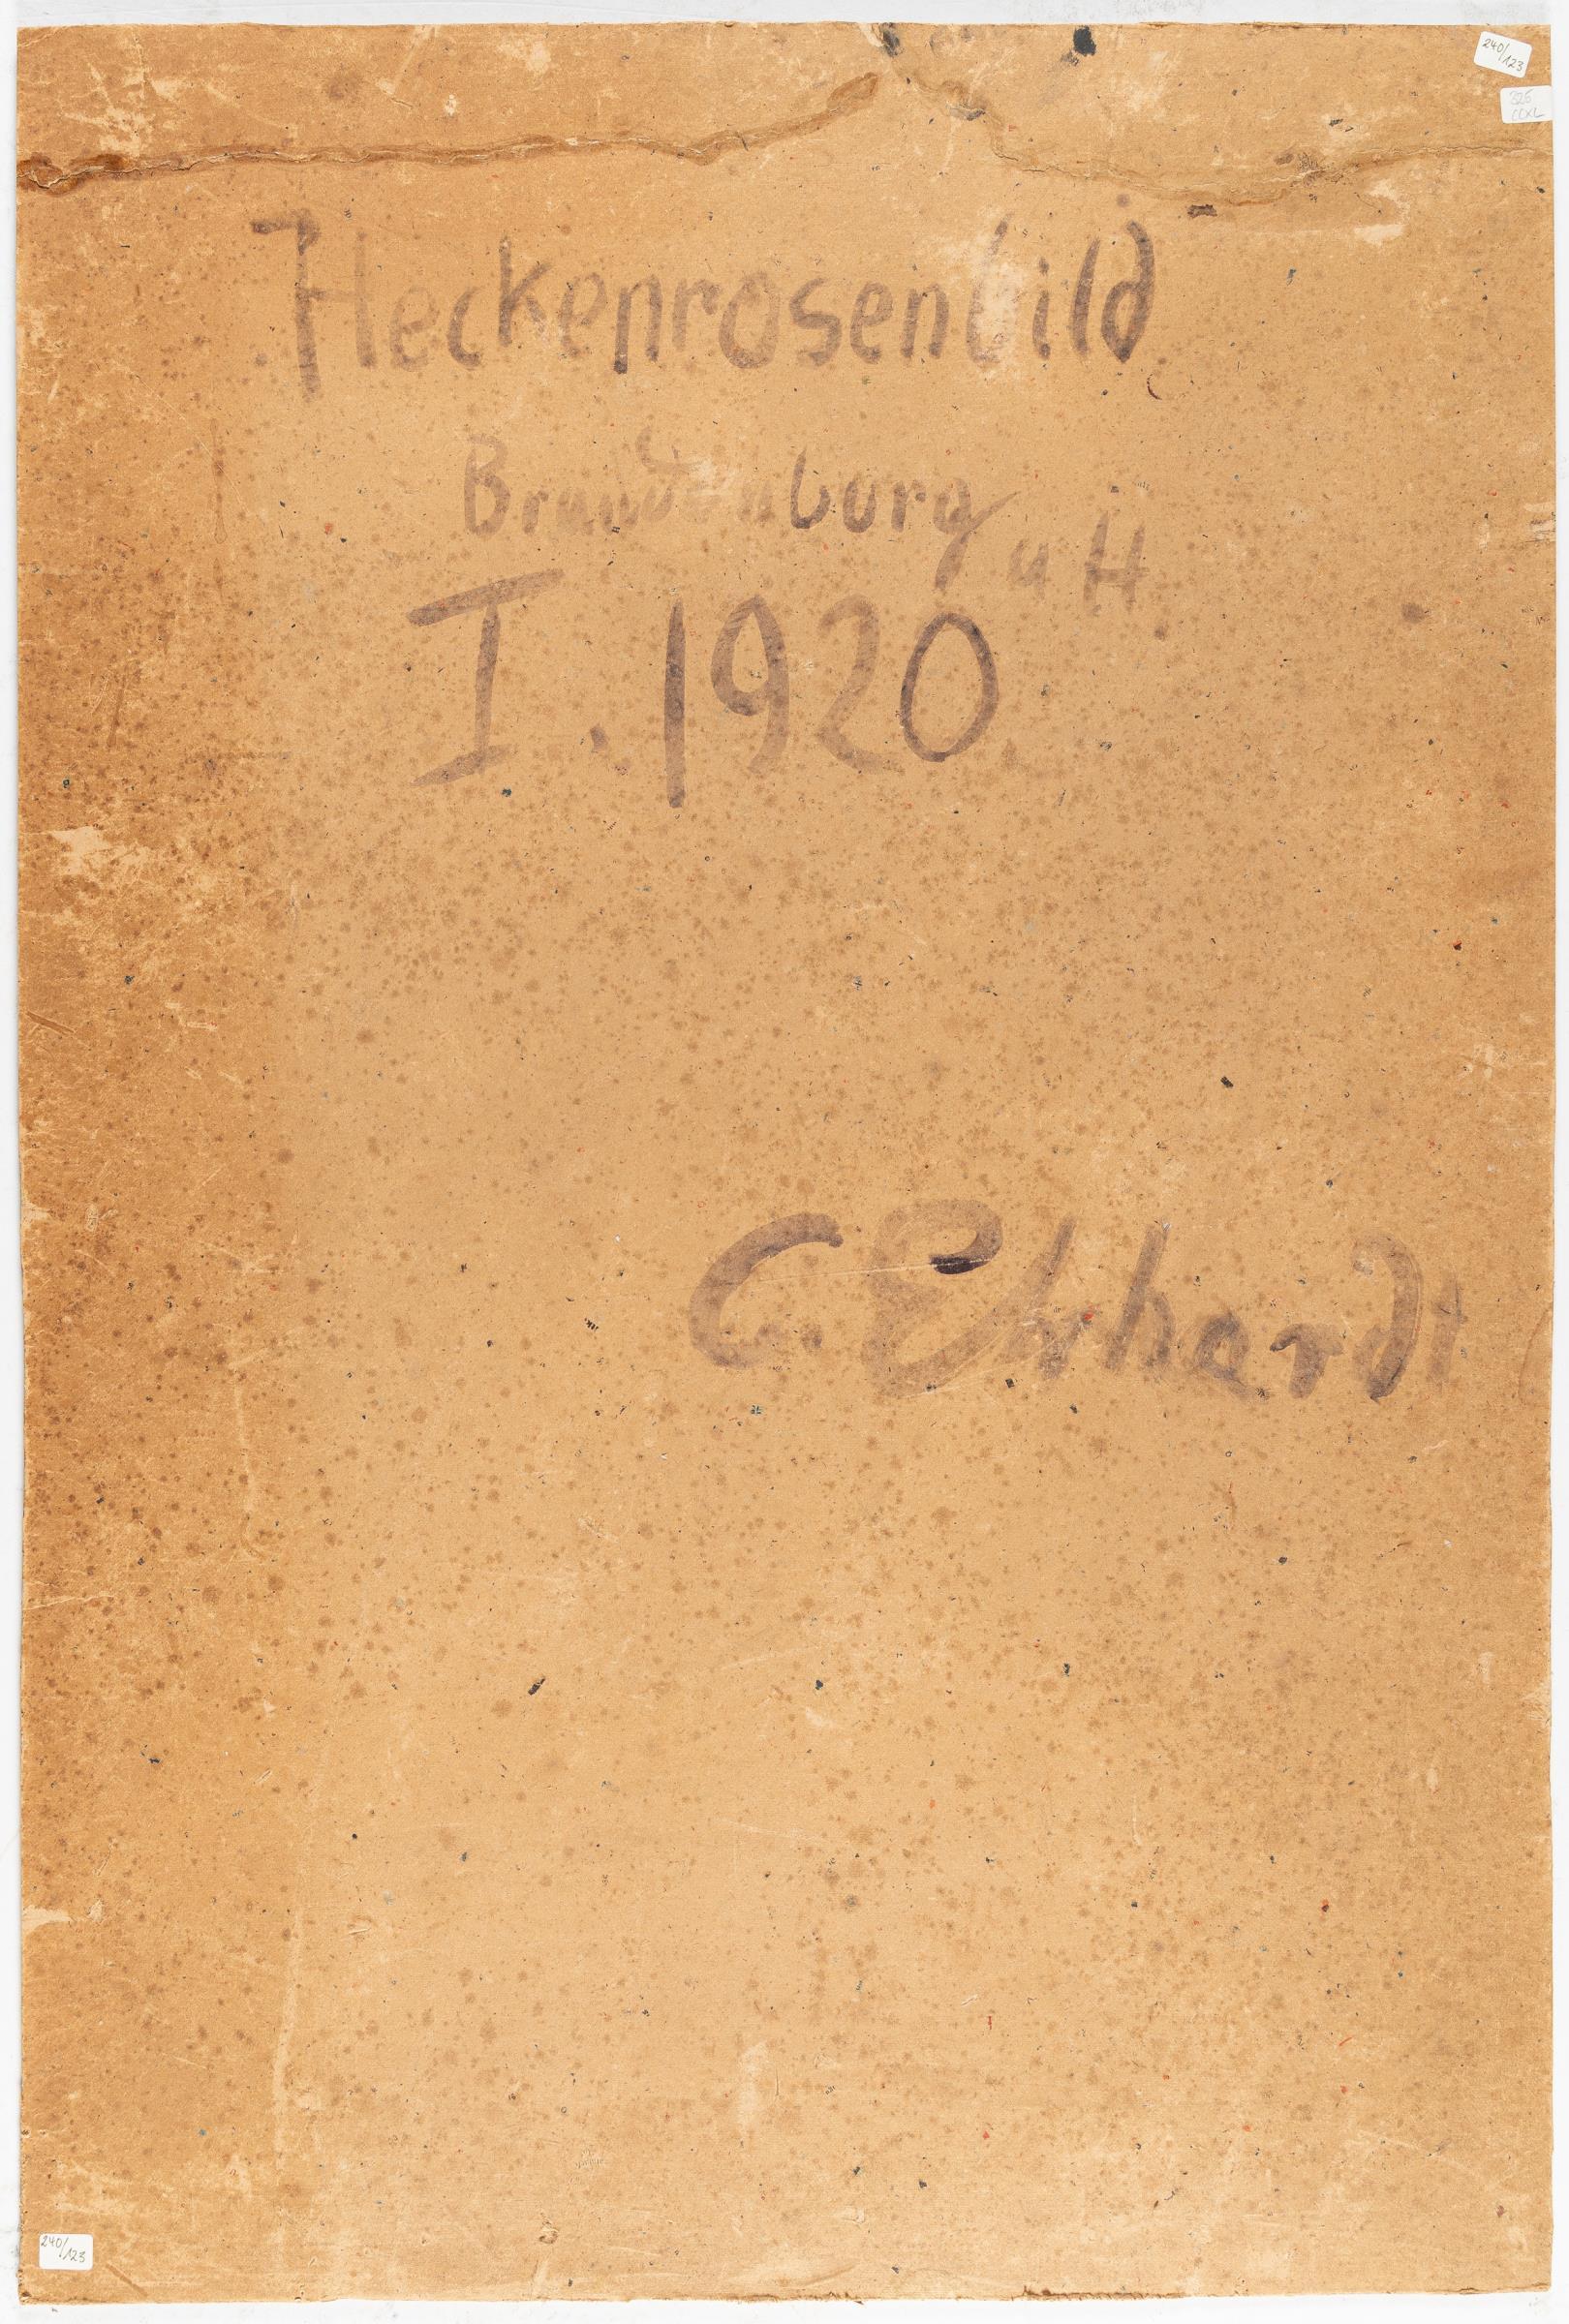 240/123
326
CCXL
Heckenrosenbild
Brandenburg a H
I. 1920
C. Ehrhardt
240/123